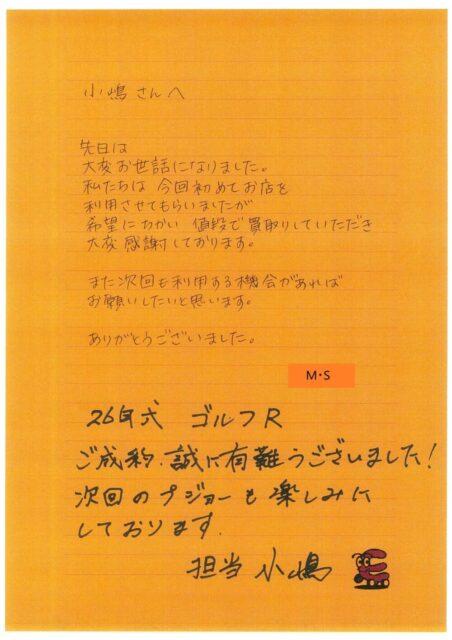 小嶋さんへ
先日は
大変お世話になりました。
私たちは 今回初めてお店を
利用させてもらいましたが
希望にちかい 値段で買取りしていただき
大変感謝しております。
また次回も利用する機会があれば
お願いしたいと思います。
ありがとうございました。
M・S
26年式 ゴルフR
ご成約、誠に有難うございました！
次回のプジョーも楽しみに
しております.
担当 小嶋